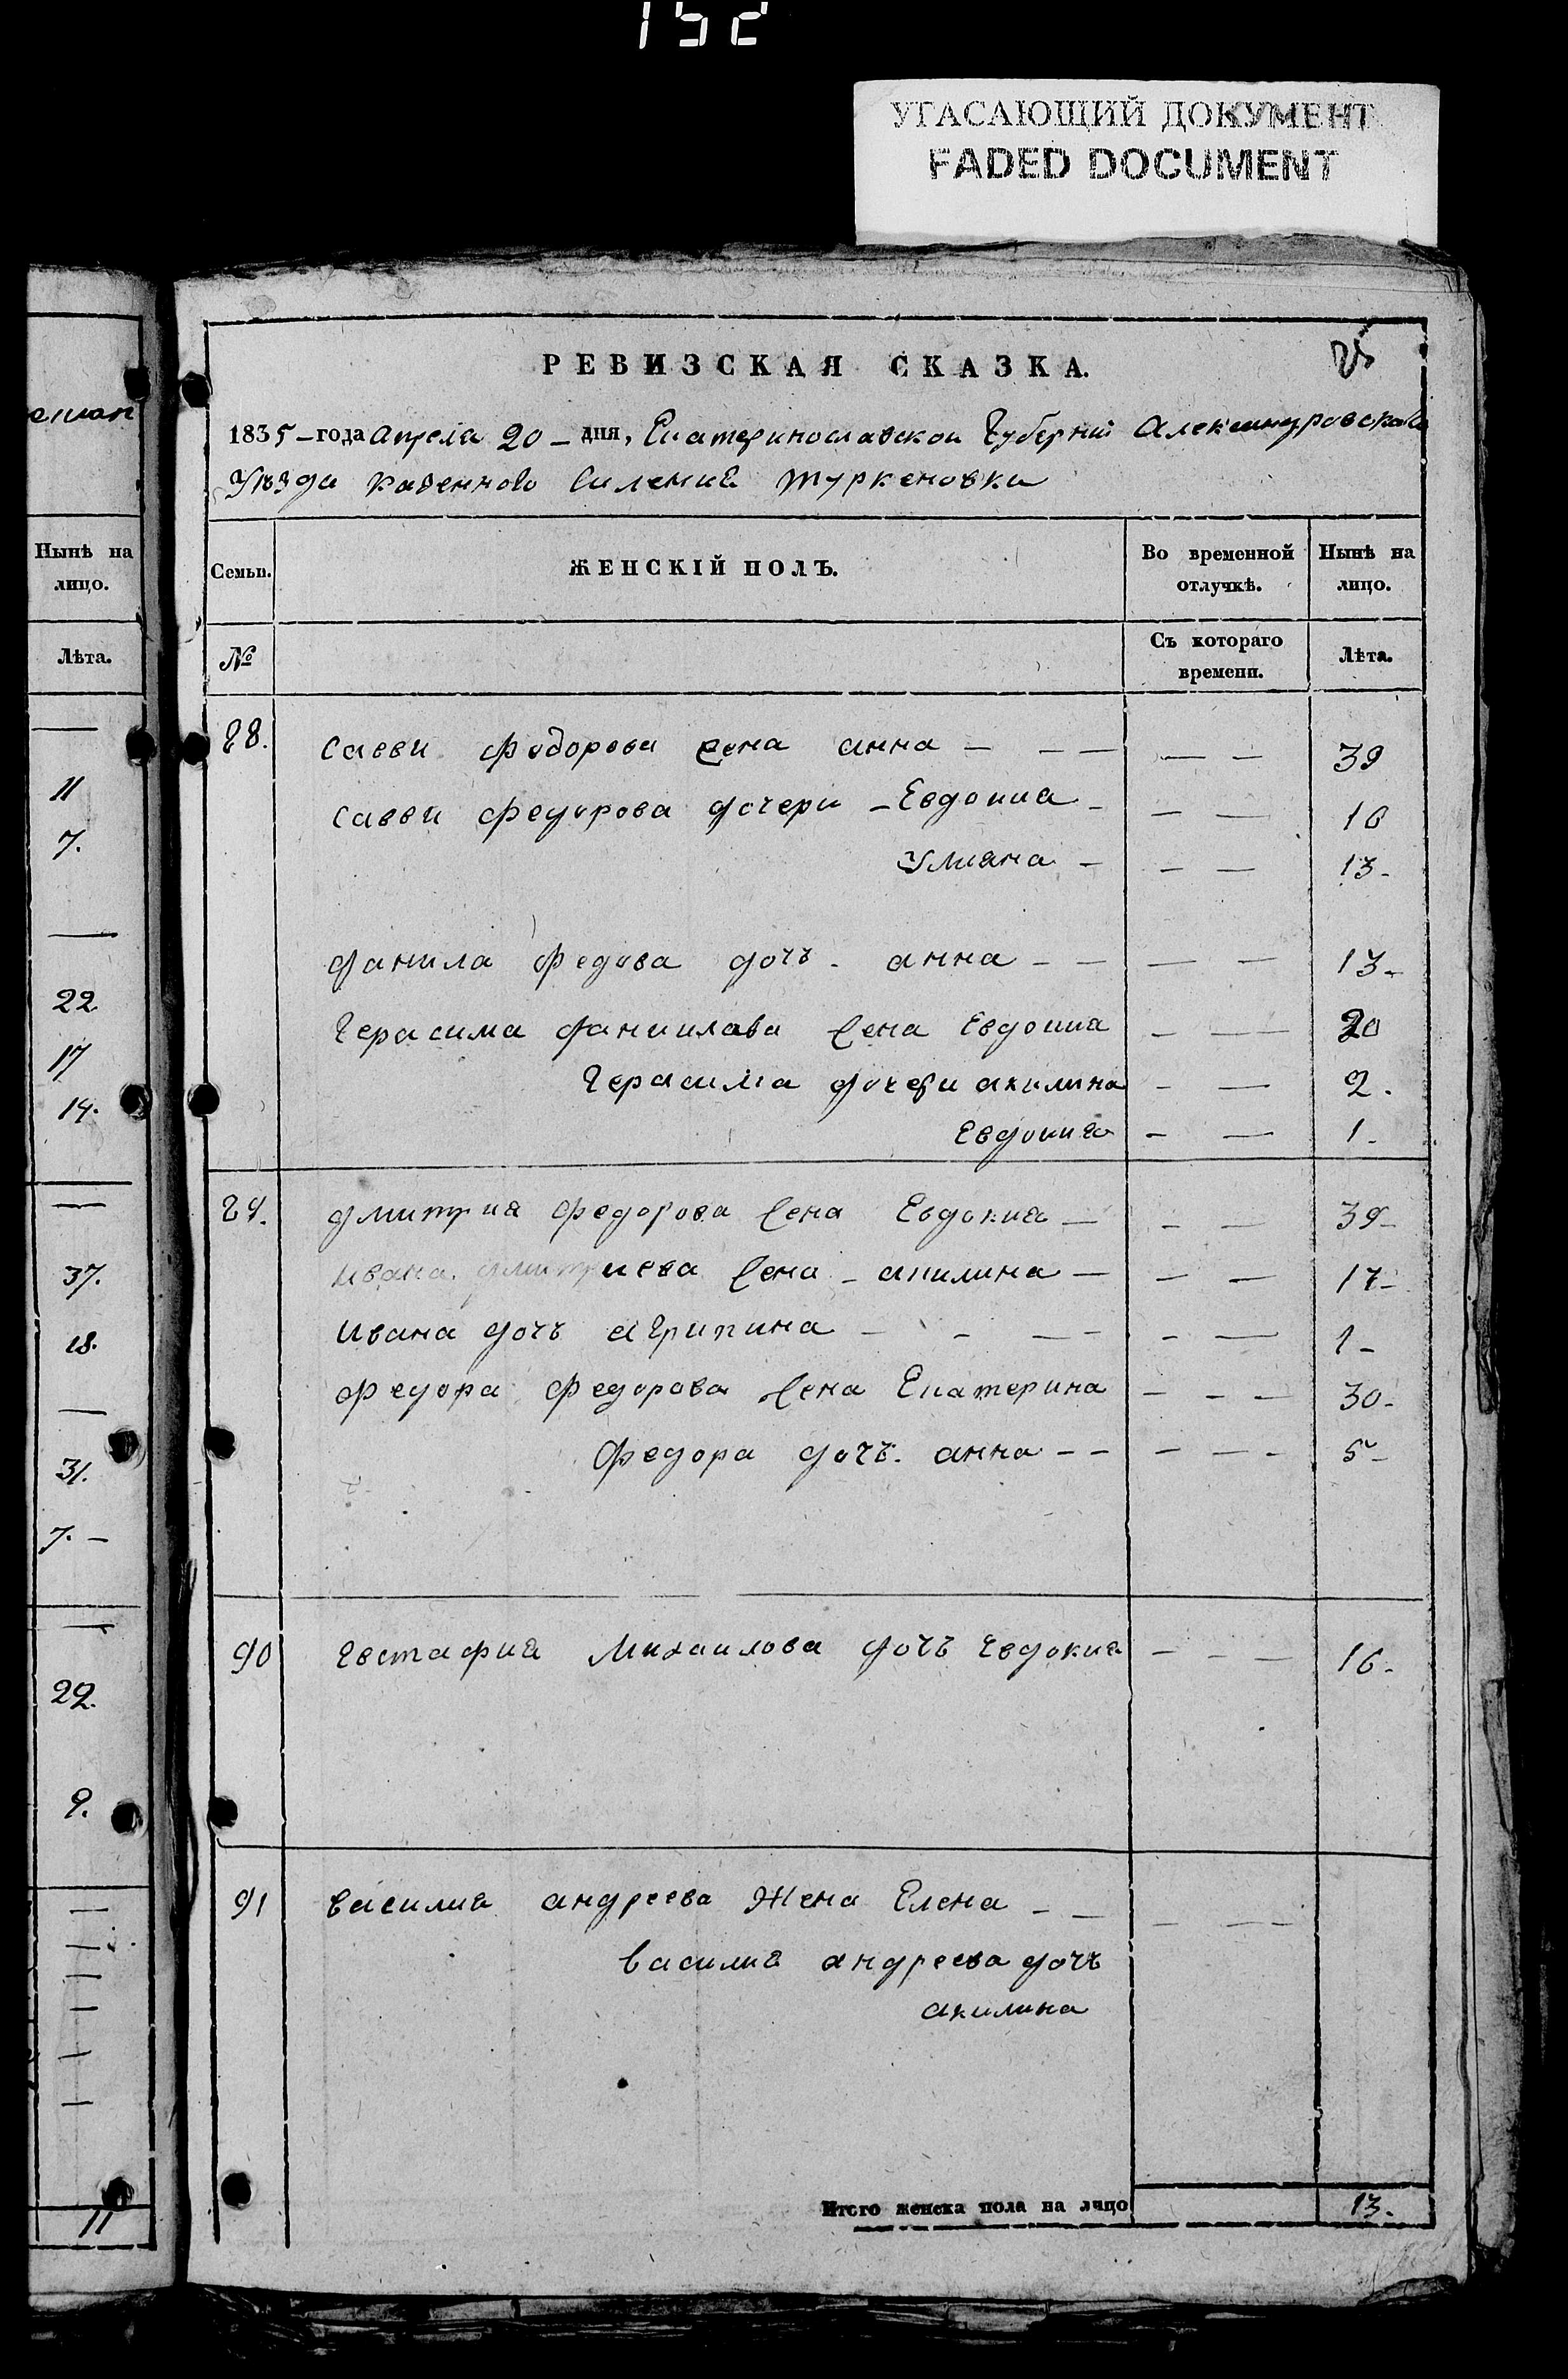 152
УГАСАЮЩИЙ ДОКУМЕНТ
FADED DOCUMENT
Нынѣ на
лицо.
Лѣта.
—
11
7.
—
22
17
14.
—
37.
18.
—
31.
7. —
—
22.
9.
—
—
—
—
—
—
11
РЕВИЗСКАЯ СКАЗКА.
1835 – года апреля 20 – дня, Екатеринославской Губерніи Александровскаго
Уѣзда казенного Силения Туркеновки
Семьи. ЖЕНСКІЙ ПОЛЪ. Во временной отлучкѣ. Нынѣ на лицо.
№ Съ котораго времени. Лѣта.
88. Савви Федорова жена анна — — — — — 39
Савви Федорова дочери – Евдокиа – — — 16
Улиана – — — 13 –
данила Федова дочъ. анна – – — — 13 –
Герасима данилава жена Евдокиа — — 20
Герасима дочери акилина – — 2.
Евдокиа – — 1 –
89. дмитриа Федорова жена Евдокиа — – — 39 –
Ивана дмитриева жена – акилина — — — 17 –
Ивана дочъ агрипина – – — – – — 1 –
Федора Федорова жена Екатерина — – — 30 –
Федора дочъ. анна – – — — – 5 –
90 Евстафиа Михаилова дочъ Евдокиа — – — 16 –
91 василиа андреева жена Елена – — – — –
василиа андреева дочъ
акилина
Итого женска пола на лицо 13.